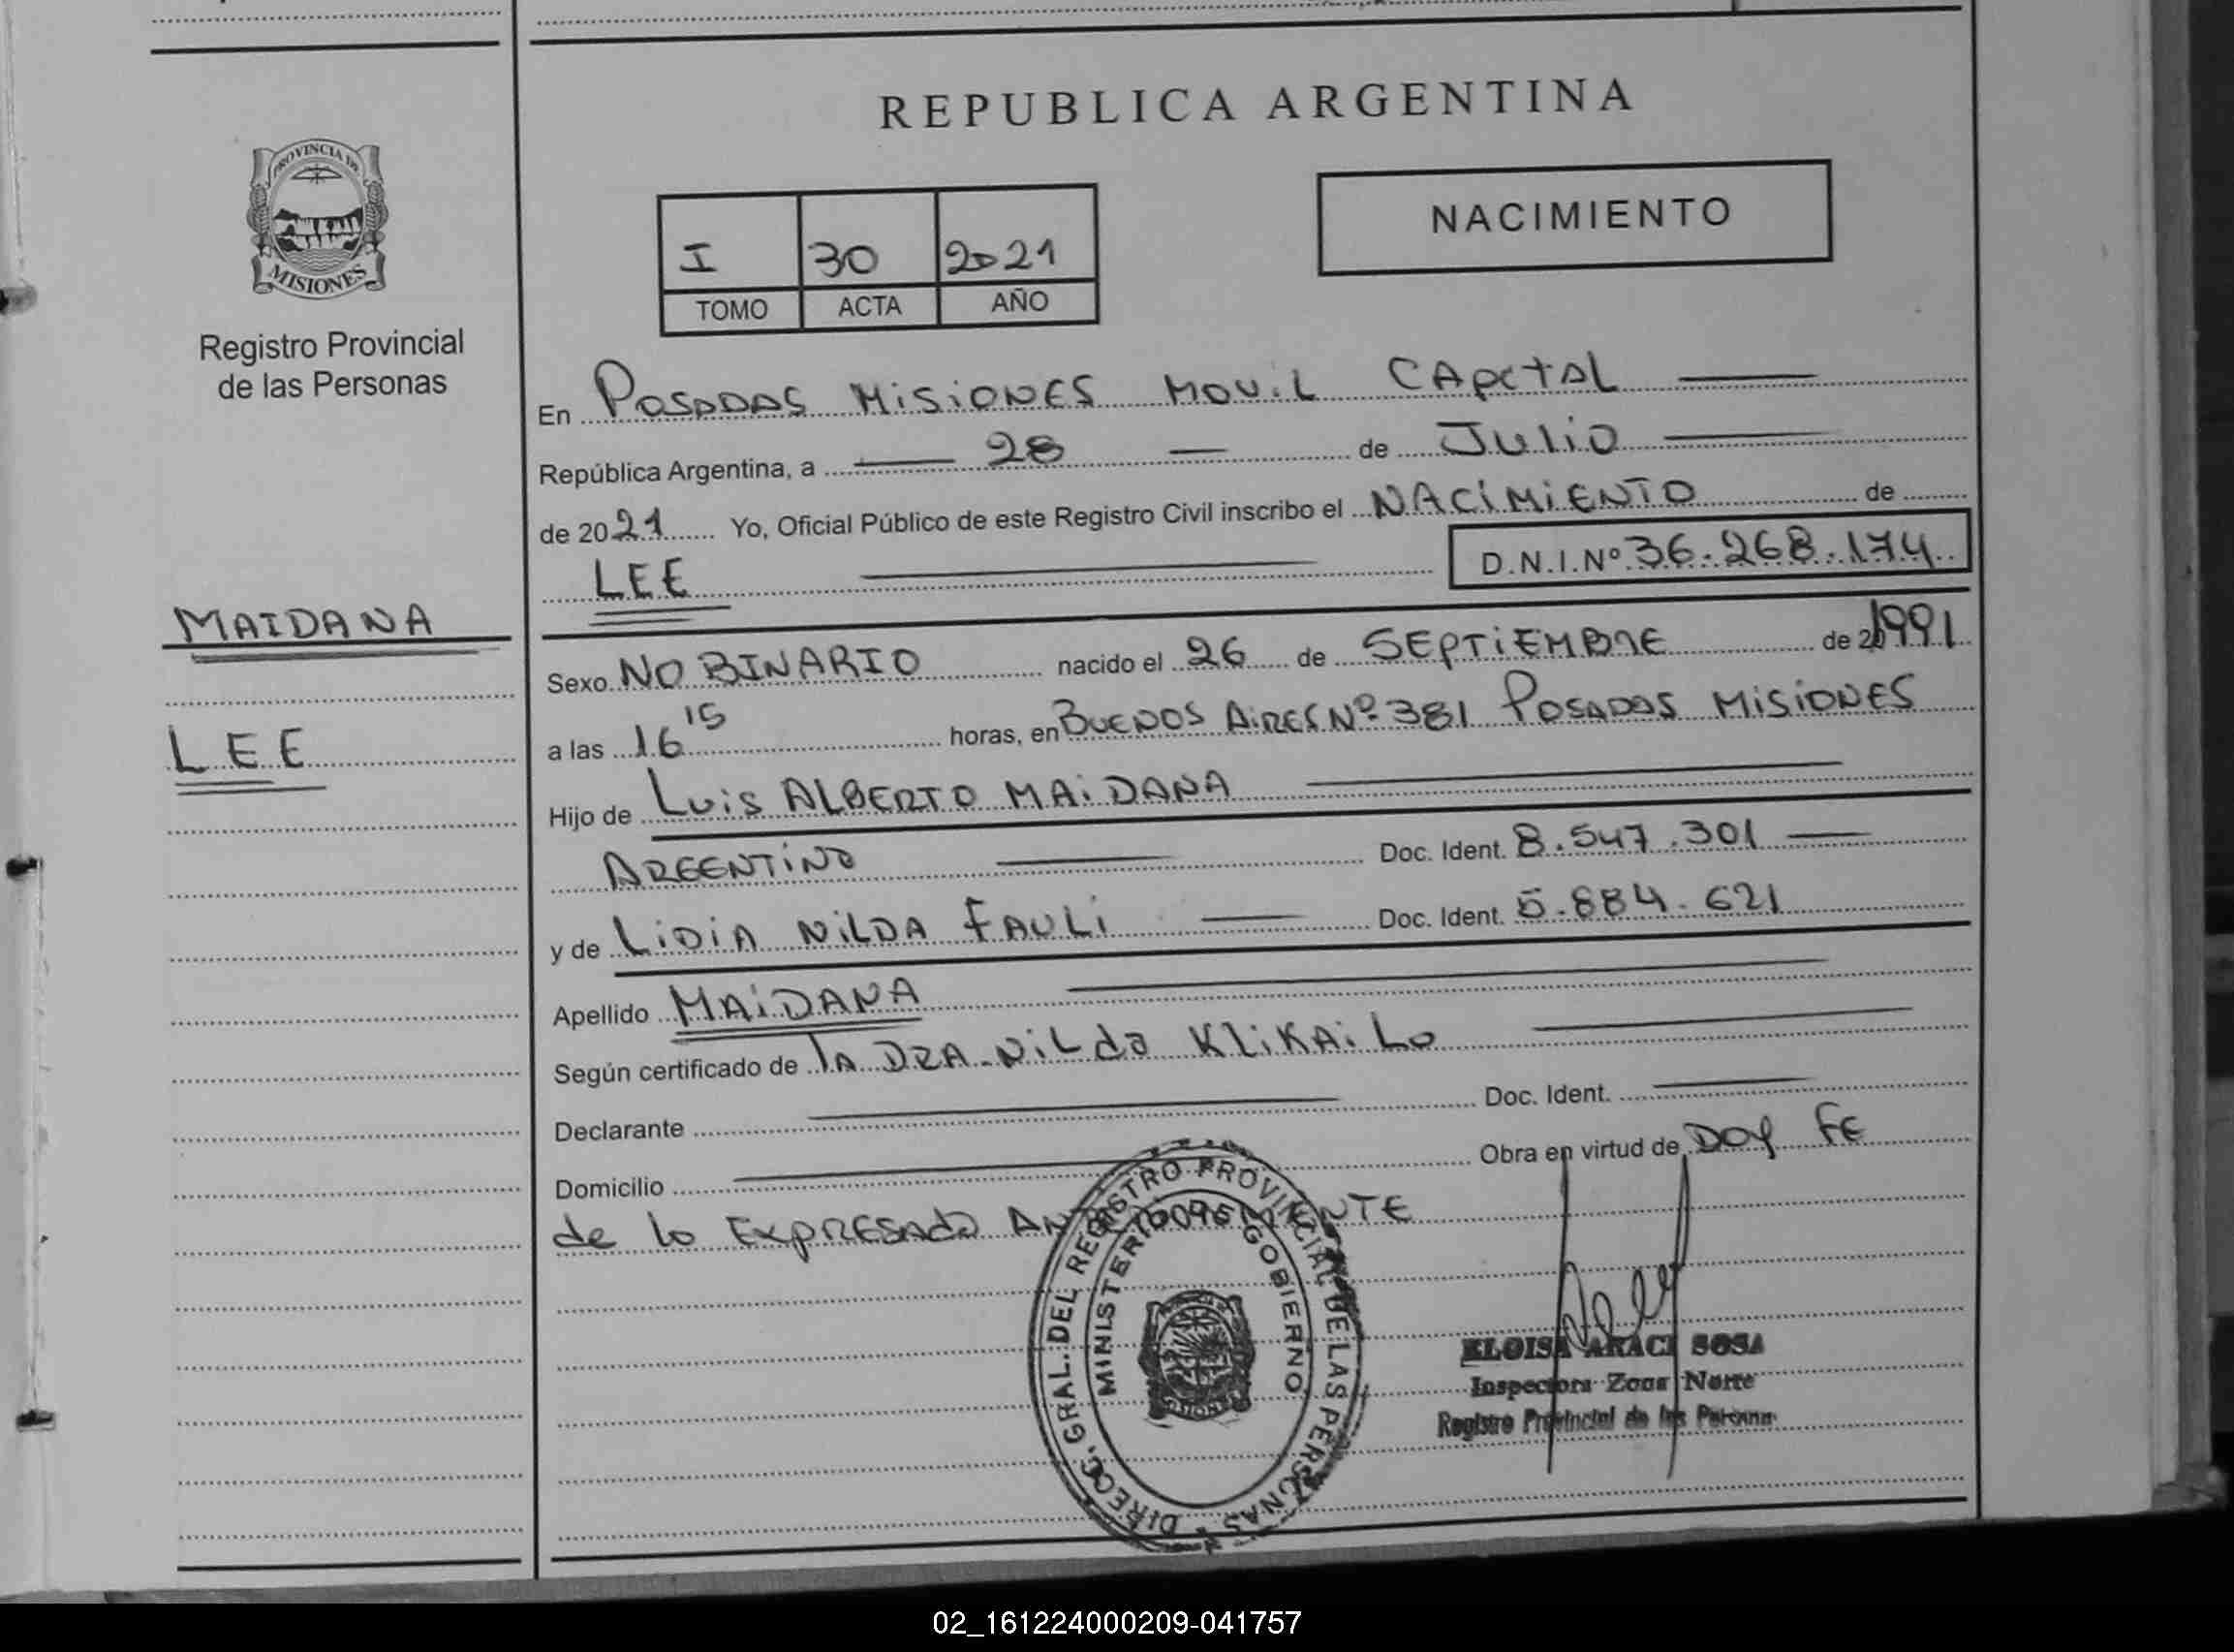 REPUBLICA ARGENTINA
PROVINCIA DE
MISIONES
Registro Provincial
de las Personas
MAIDANA
LEE
I 30 2021
TOMO ACTA AÑO
NACIMIENTO
En POSADAS MISIONES MOVIL CAPITAL
República Argentina, a 28 de JULIO
de 2021 Yo, Oficial Público de este Registro Civil inscribo el NACIMIENTO de
LEE D.N.I.Nº 36.268.174
Sexo NO BINARIO nacido el 26 de SEPTIEMBRE de 1991
a las 16 15 horas, en BUENOS AIRES Nº 381 POSADAS MISIONES
Hijo de LUIS ALBERTO MAIDANA
ARGENTINO Doc. Ident. 8.547.301
y de LIDIA NILDA FAULI Doc. Ident. 5.884.621
Apellido MAIDANA
Según certificado de lA DRA. NILda KLIKAILo
Declarante Doc. Ident.
Domicilio Obra en virtud de DOY FE
de lo EXPRESAdo ANTERIORMENTE
DIRECC. GRAL. DEL REGISTRO PROVINCIAL DE LAS PERSONAS
MINISTERIO GOBIERNO
ELOISA ARACI SOSA
Inspectora Zona Norte
Registro Provincial de las Personas
02_161224000209-041757